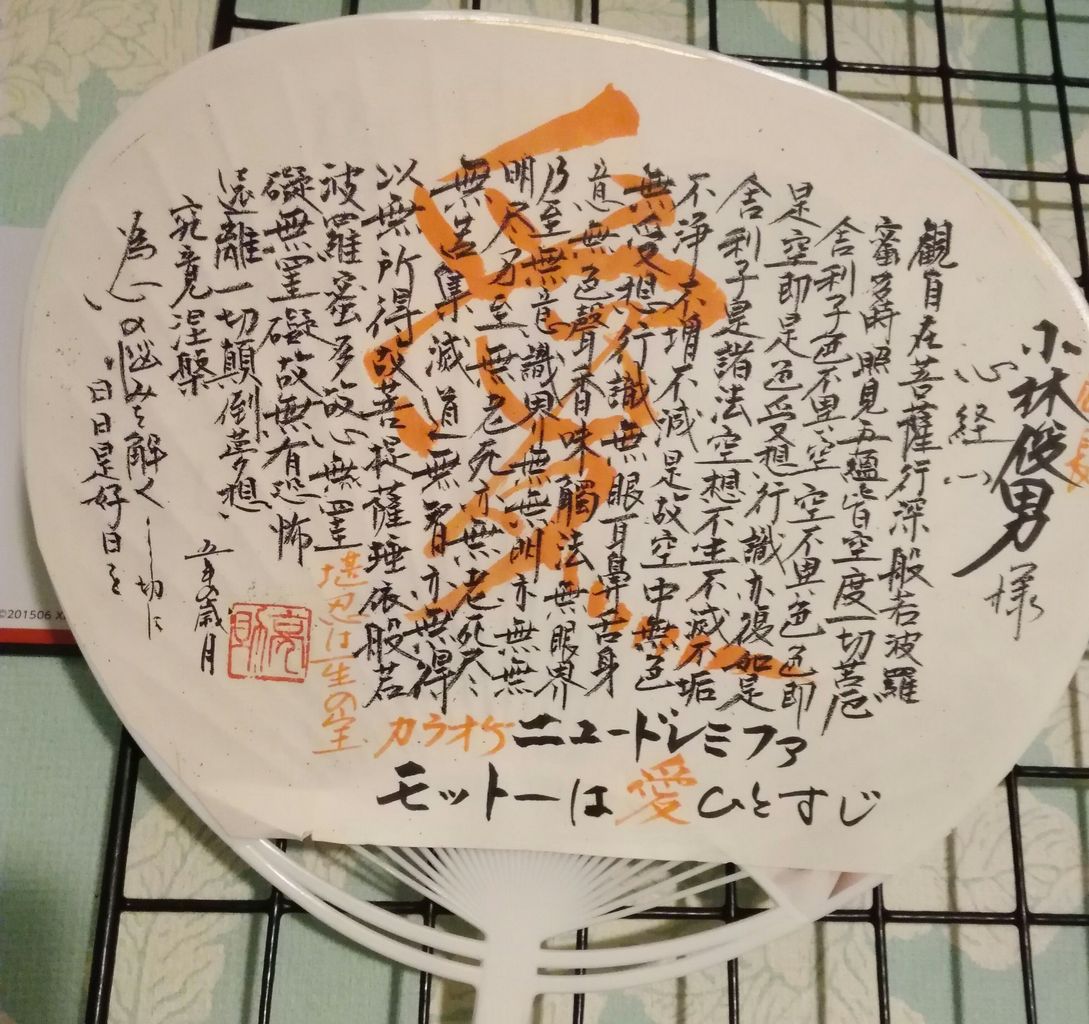 小林俊男様
心経
観自在菩薩行深般若波羅
蜜多時照見五蘊皆空度一切苦厄
舎利子色不異空空不異色色即
是空即是色受想行識亦復如是
舎利子是諸法空想不生不滅不垢
不浄不増不減是故空中無色
無受想行識無眼耳鼻舌身
意無色聲香味觸法無眼界
乃至無意識界無無明亦無無
明尽乃至無老死亦無老死尽
無苦集滅道無智亦無得
以無所得故菩提薩埵依般若
波羅蜜多故心無罣
礙無罣礙故無有恐怖
遠離一切顛倒夢想
究竟涅槃
為心の悩みを解く
一切に
日日是好日を
五歳月
堪忍は一生の宝
愛
カラオケニュードレミファ
モットーは愛ひとすじ
©201506